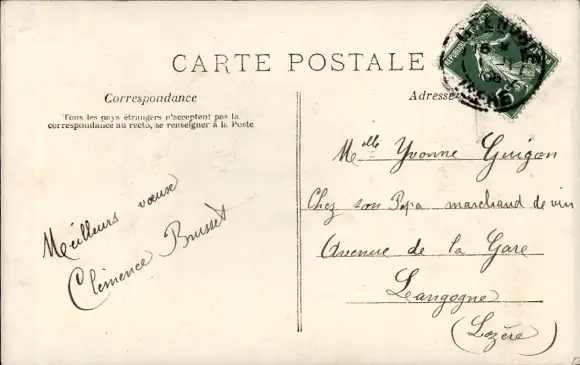 CARTE POSTALE
Correspondance
Tous les pays étrangers n'acceptent pas la
correspondance au recto, se renseigner à la Poste
Meilleurs vœux
Clémence Brusset
Adresse
Melle Yvonne Guigon
Chez son Papa marchand de vin
Avenue de la Gare
Langogne
(Lozère)
GRENOBLE
ISERE